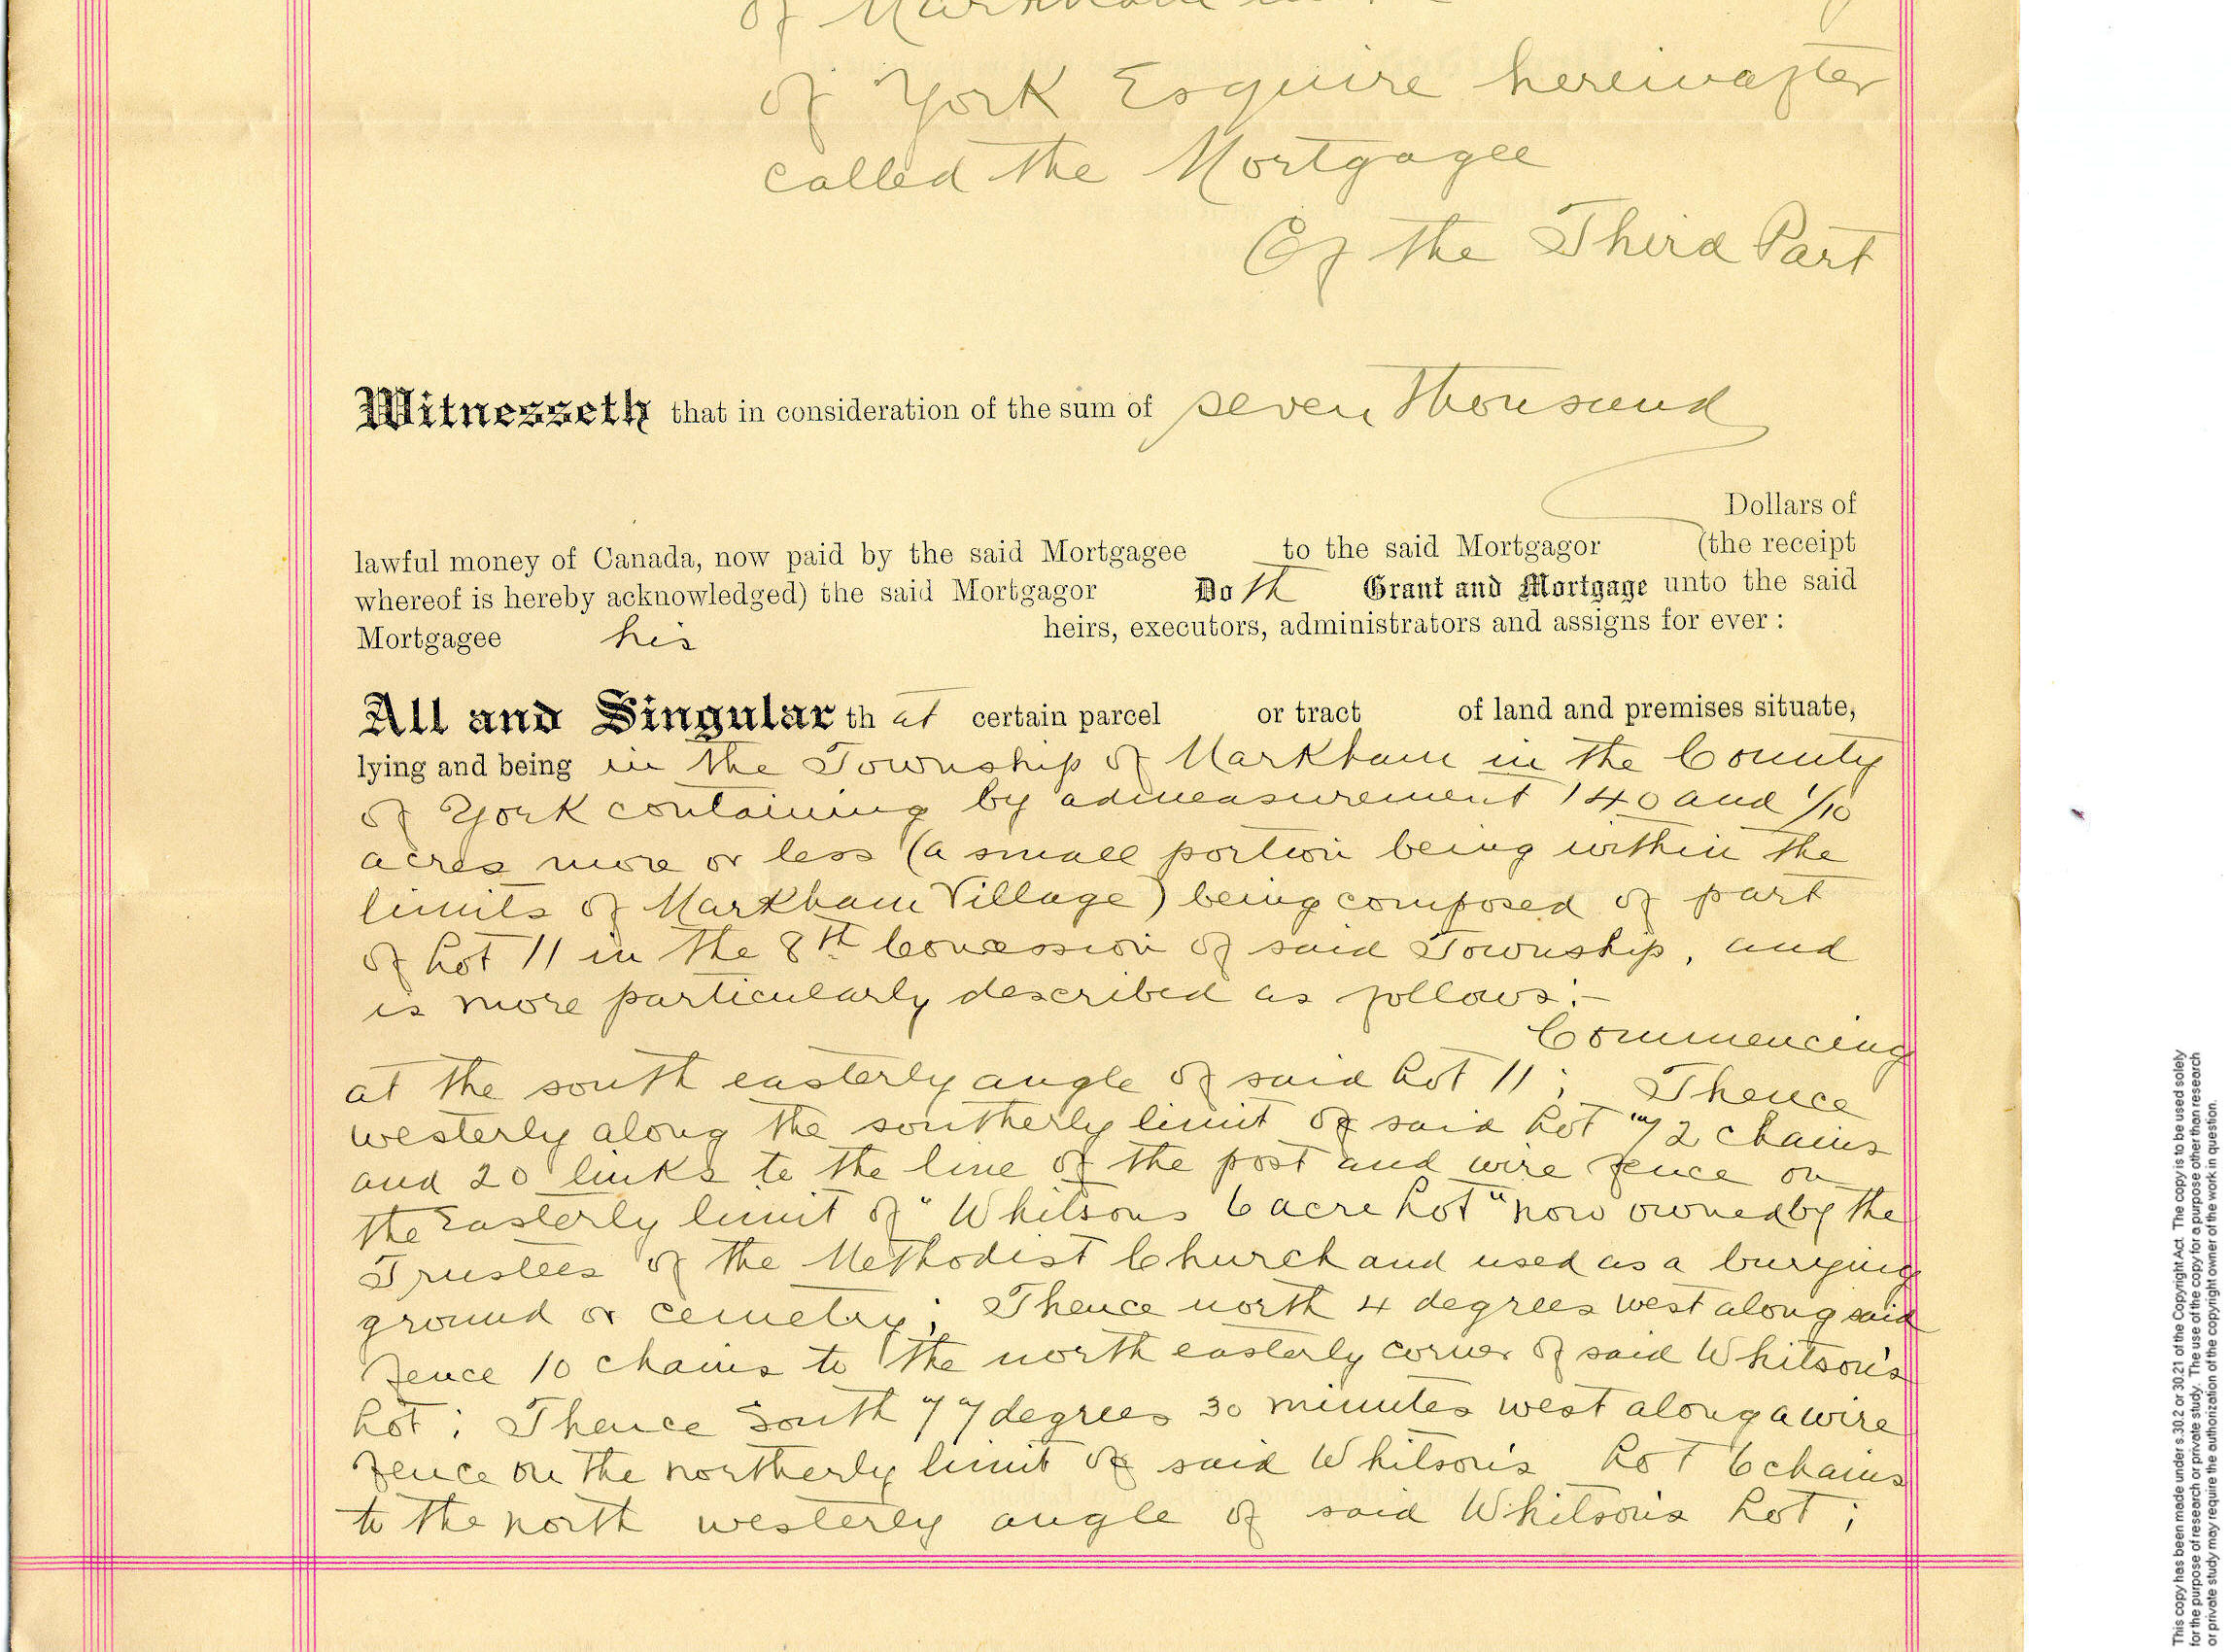 of Markham in
of York Esquire hereinafter
called the Mortgagee
Of the Third Part
Witnesseth that in consideration of the sum of seven thousand
Dollars of
lawful money of Canada, now paid by the said Mortgagee to the said Mortgagor (the receipt
whereof is hereby acknowledged) the said Mortgagor Doth Grant and Mortgage unto the said
Mortgagee his heirs, executors, administrators and assigns for ever :
All and Singular that certain parcel or tract of land and premises situate,
lying and being in the Township of Markham in the County
of York containing by admeasurement 140 and 1/10
acres more or less (a small portion being within the
limits of Markham Village) being composed of part
of Lot 11 in the 8th Concession of said Township, and
is more particularly described as follows:-
Commencing
at the south easterly angle of said Lot 11; Thence
westerly along the southerly limit of said Lot 72 chains
and 20 links to the line of the post and wire fence on
the easterly limit of "Whitsons 6 acre Lot" now owned by the
Trustees of the Methodist Church and used as a burying
ground or cemetry; Thence north 4 degrees west along said
fence 10 chains to the north easterly corner of said Whitson's
Lot; Thence South 77 degrees 30 minutes west along a wire
fence on the northerly limit of said Whitson's Lot 6 chains
to the north westerly angle of said Whitson's Lot;
This copy has been made under s.30.2 or 30.21 of the Copyright Act. The copy is to be used solely
for the purpose of research or private study. The use of the copy for a purpose other than research
or private study may require the authorization of the copyright owner of the work in question.